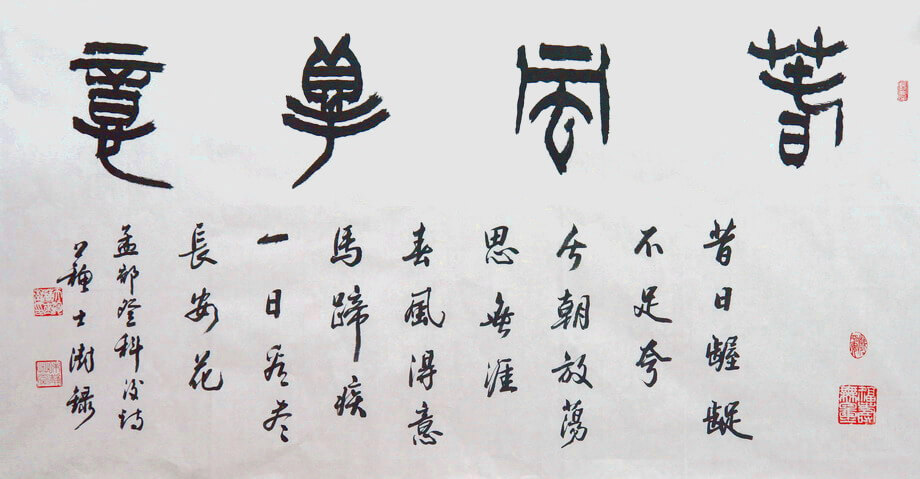 春風得意
昔日齷齪
不足夸
今朝放蕩
思無涯
春風得意
馬蹄疾
一日看盡
長安花
孟郊登科後詩
蘇士澍錄